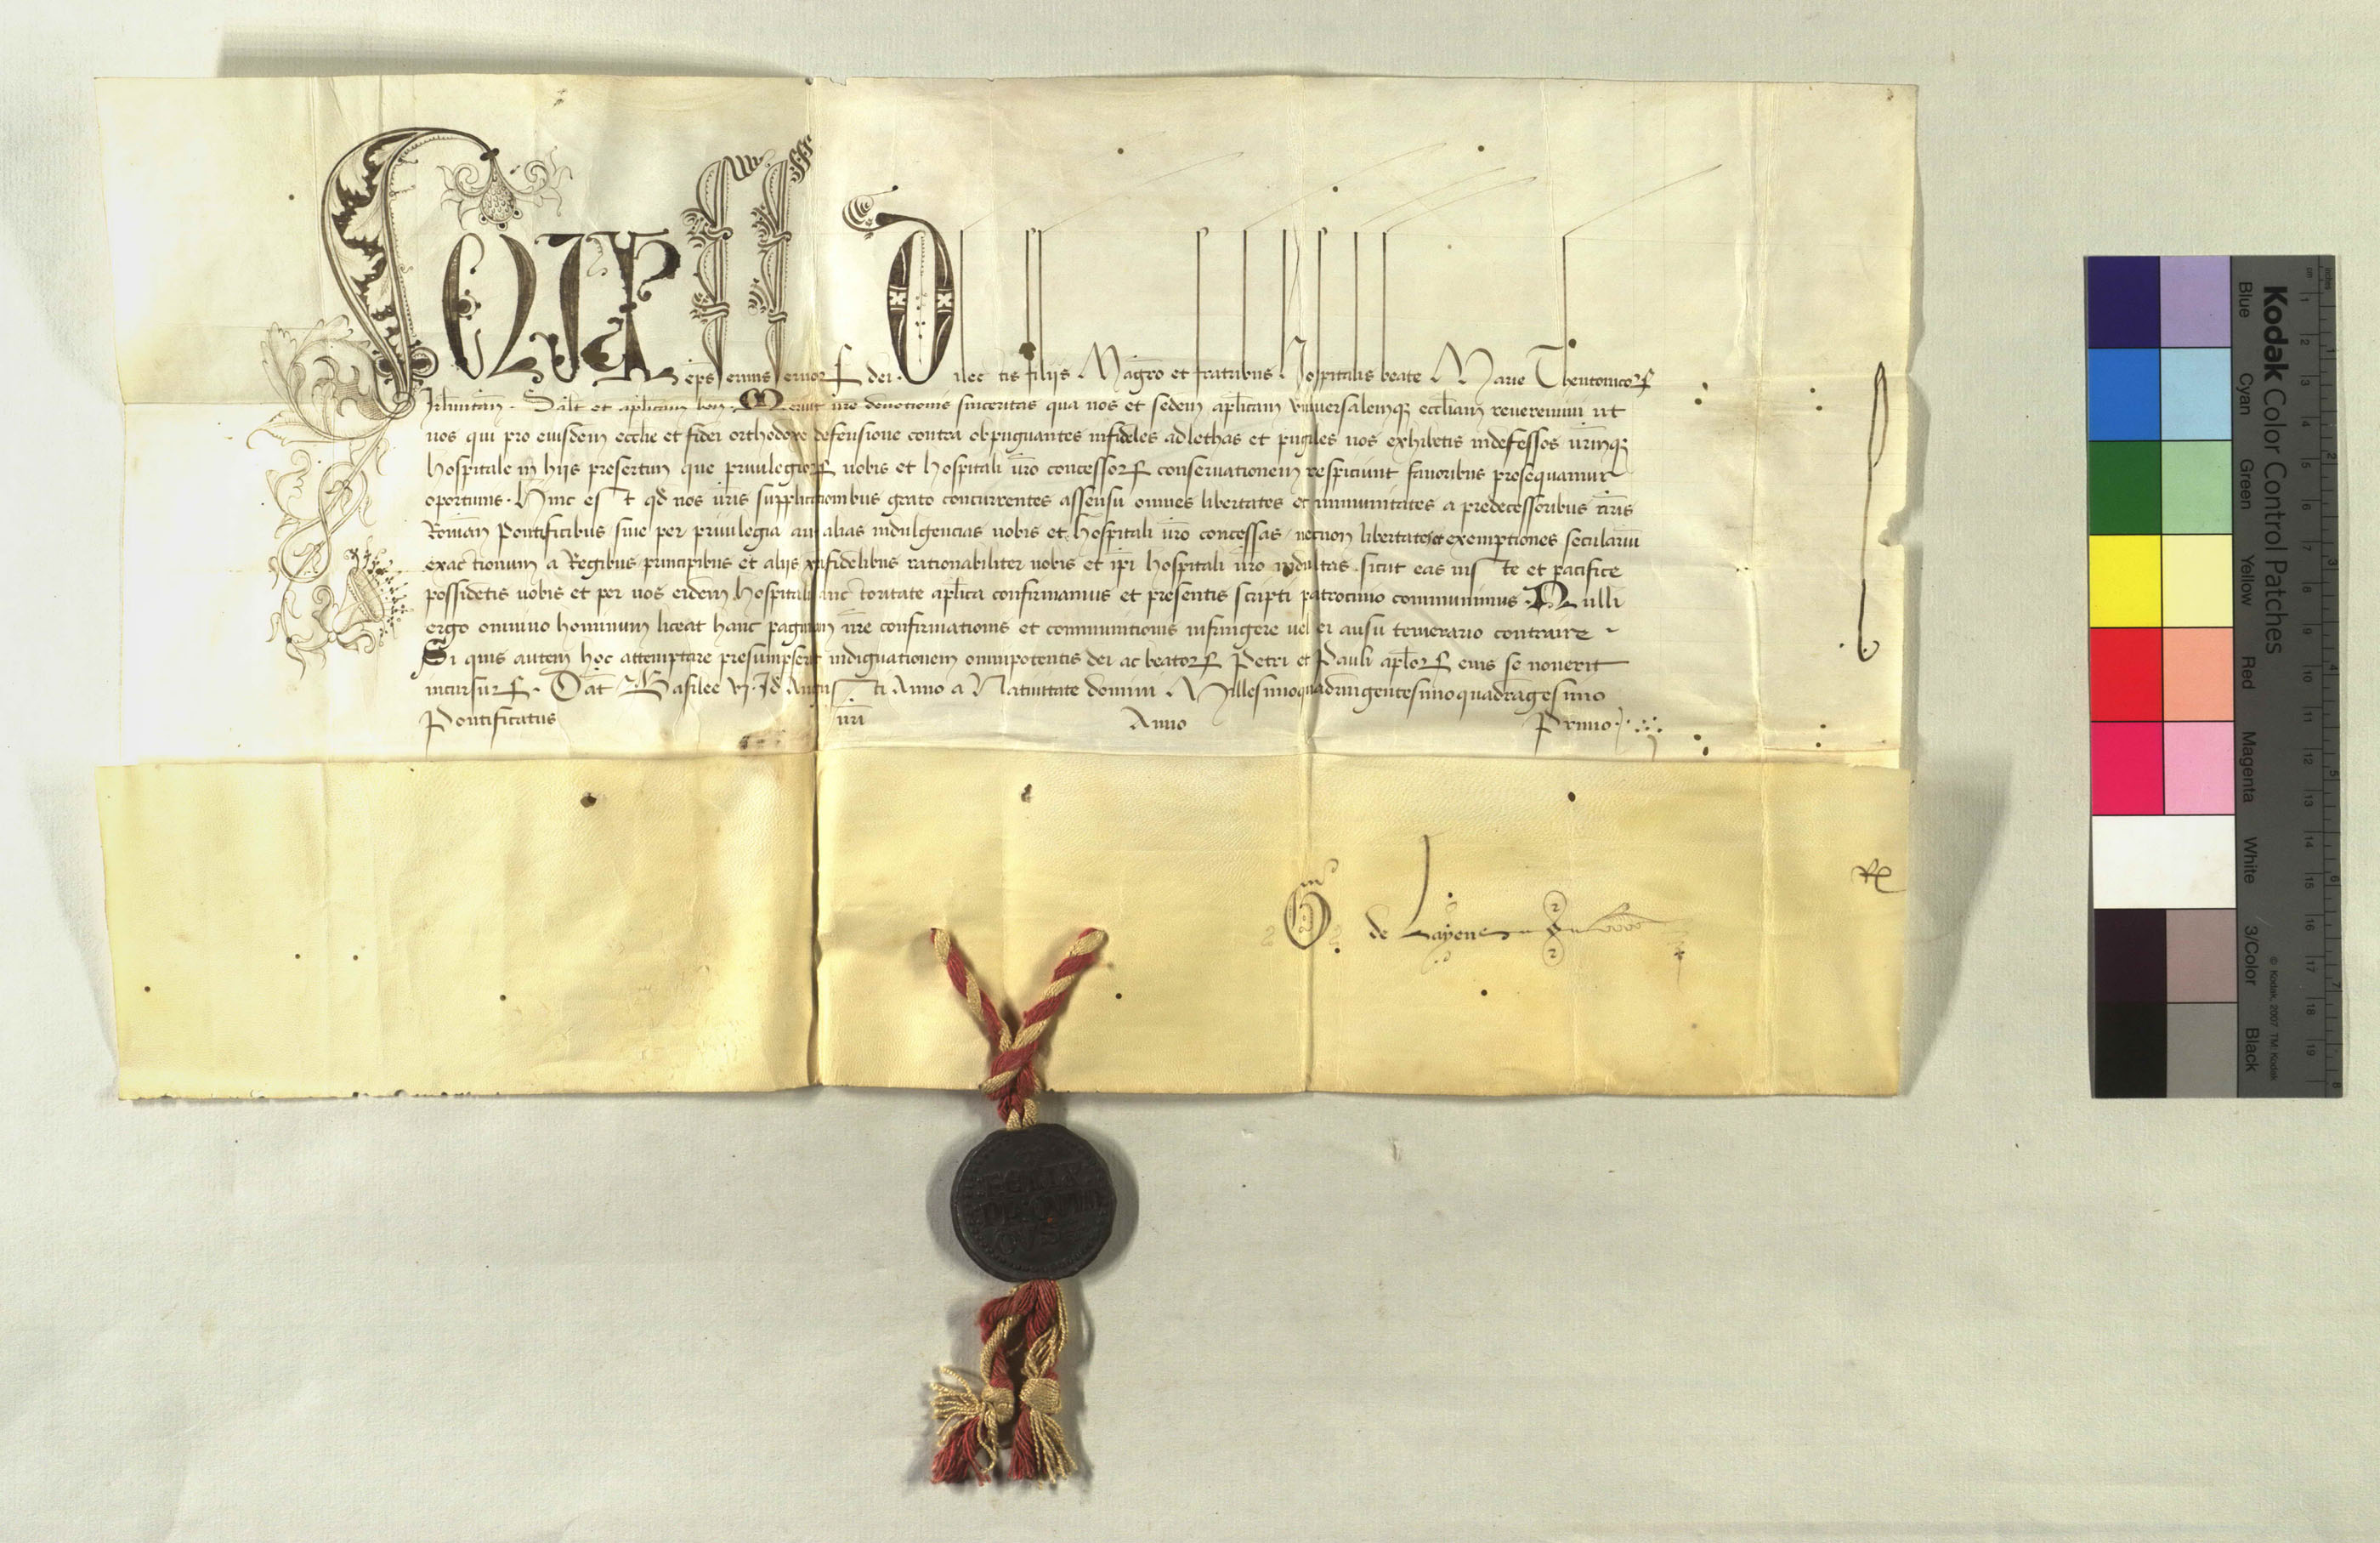 FELIX eps seruus seruor dei. Dilectis filijs Magro et fratribus Hospitalis beate Marie Theutonicor
Jrlimitan. Salt et aplicam ben. Meruit vre deuotionis sinceritas qua nos et sedem aplicam vniuersalemq eccliam reueremini ut
uos qui pro eiusdem ecclie et fidei orthodoxe defensione contra obpugnantes infideles adlethas et pugiles uos exhibetis indefessos urmq
hospitale in hijs presertim que priuilegior uobis et hospitali vro concessor conseruationem respiciunt fauoribus prosequamur
oportunis. Hinc est qd nos vris supplicationibus grato concurrentes assensu omnes libertates et immunitates a predecessoribus nris
Roman Pontificibus siue per priuilegia aut alias indulgencias uobis et hospitali vro concessas necnon libertates et exemptiones seculariu
exactionum a Regibus principibus et alijs xpifidelibus rationabiliter uobis et ipi hospitali vro indultas sicut eas iuste et pacifice
possidetis uobis et per uos eidem hospitali auctoritate aplica confirmamus et presentis scripti patrocinio communimus. Nulli
ergo omnino hominum liceat hanc paginam nre confirmationis et communitionis infringere uel ei ausu temerario contraire
Si quis autem hoc attemptare presumpserit indignationem omnipotentis dei ac beator Petri et Pauli aplor eius se nouerit
incursur. Dat Basilee vj. Jd Augusti Anno a Natiuitate domini Millesimoquadringentesimoquadragesimo
Pontificatus nri Anno Primo
G de Layens
FELIX
PAPA
QVINT
QVS
Kodak Color Control Patches
© Kodak, 2007 TM: Kodak
Blue Cyan Green Yellow Red Magenta White 3/Color Black
cm 1 2 3 4 5 6 7 8 9 10 11 12 13 14 15 16 17 18 19
inches 1 2 3 4 5 6 7 8